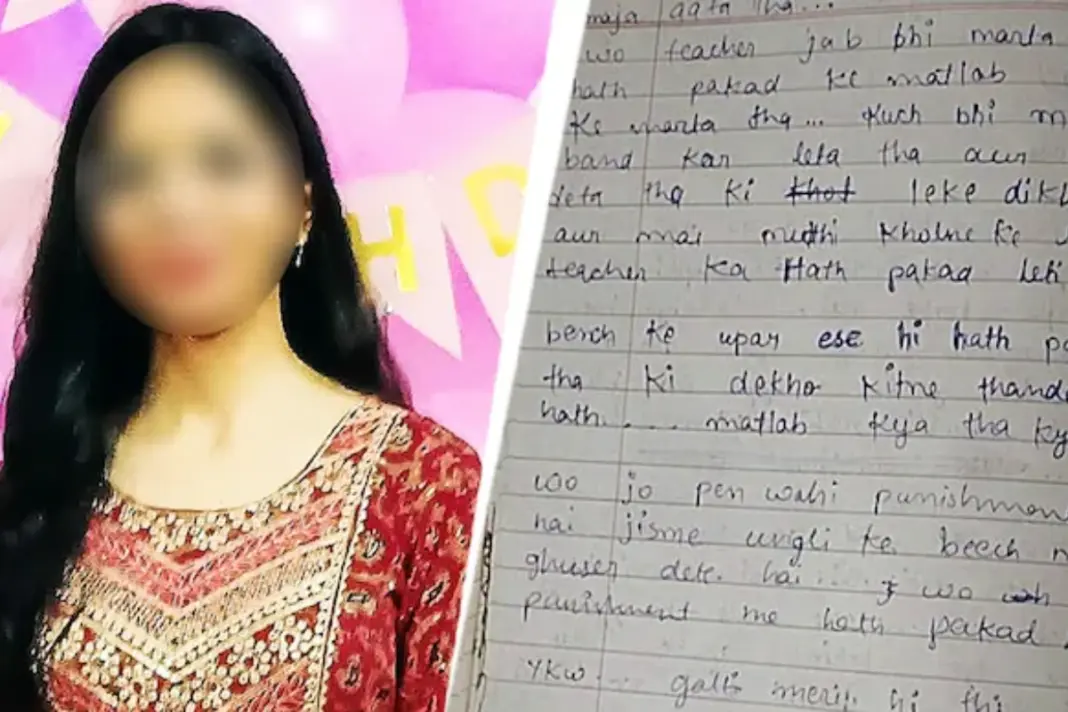 H D
maja aata tha...
wo teacher jab bhi marta
hath pakad ke matlab
ke marta tha... Kuch bhi
band kar leta tha aur
deta tha ki thot leke
aur mai mutthi kholne ke
teacher ka Hath pakad leti
bench ke upar ese hi hath
tha ki dekho kitne
hath.... matlab kya tha
woo jo pen wahi
hai jisme ungli ke beech
ghuser dete hai.... wo
punishment me hath pakad
YKW... galti meri hi thi